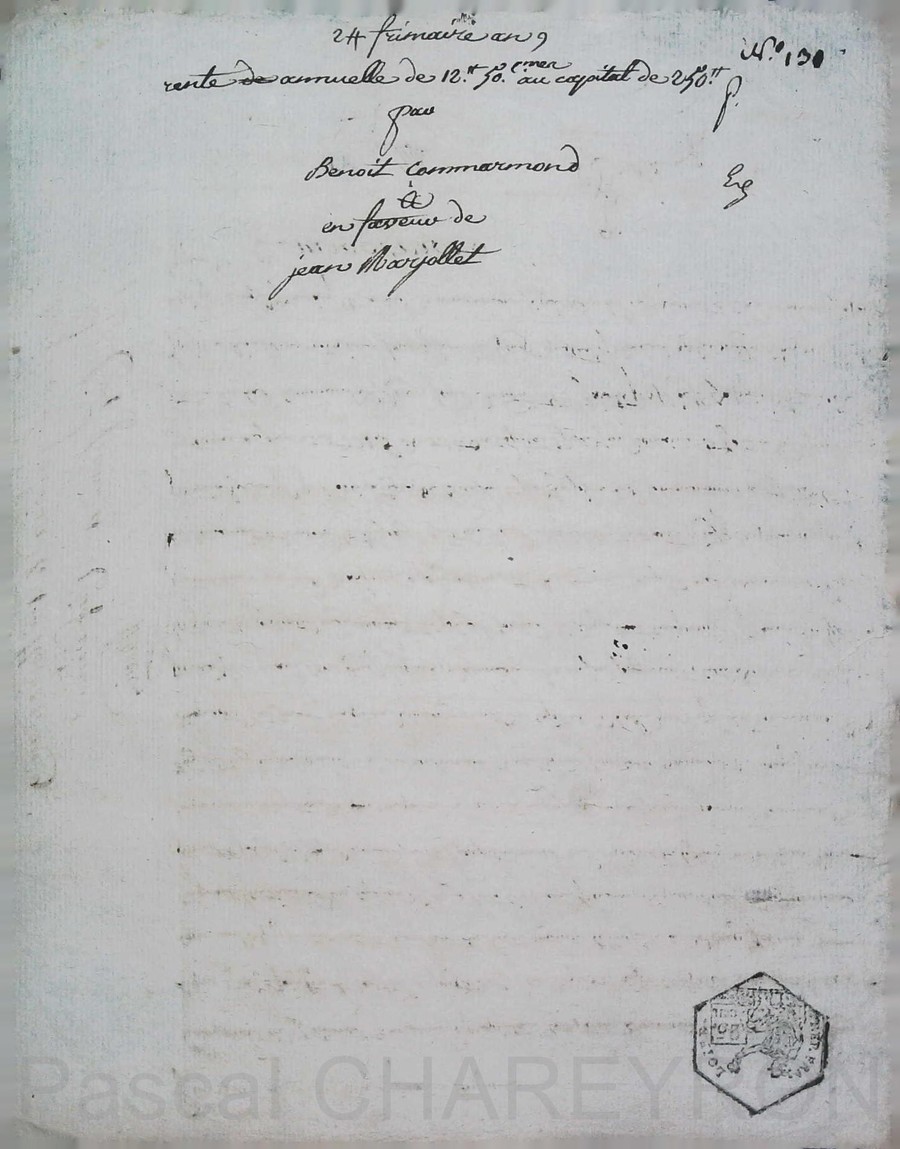 24 frimaire an 9
N.º 131
rente de annuelle de 12.tt 50.cmes au capital de 250.tt
par
Benoit Commarmond
à
en faveur de
jean Marjollet
Pascal CHAREYRON